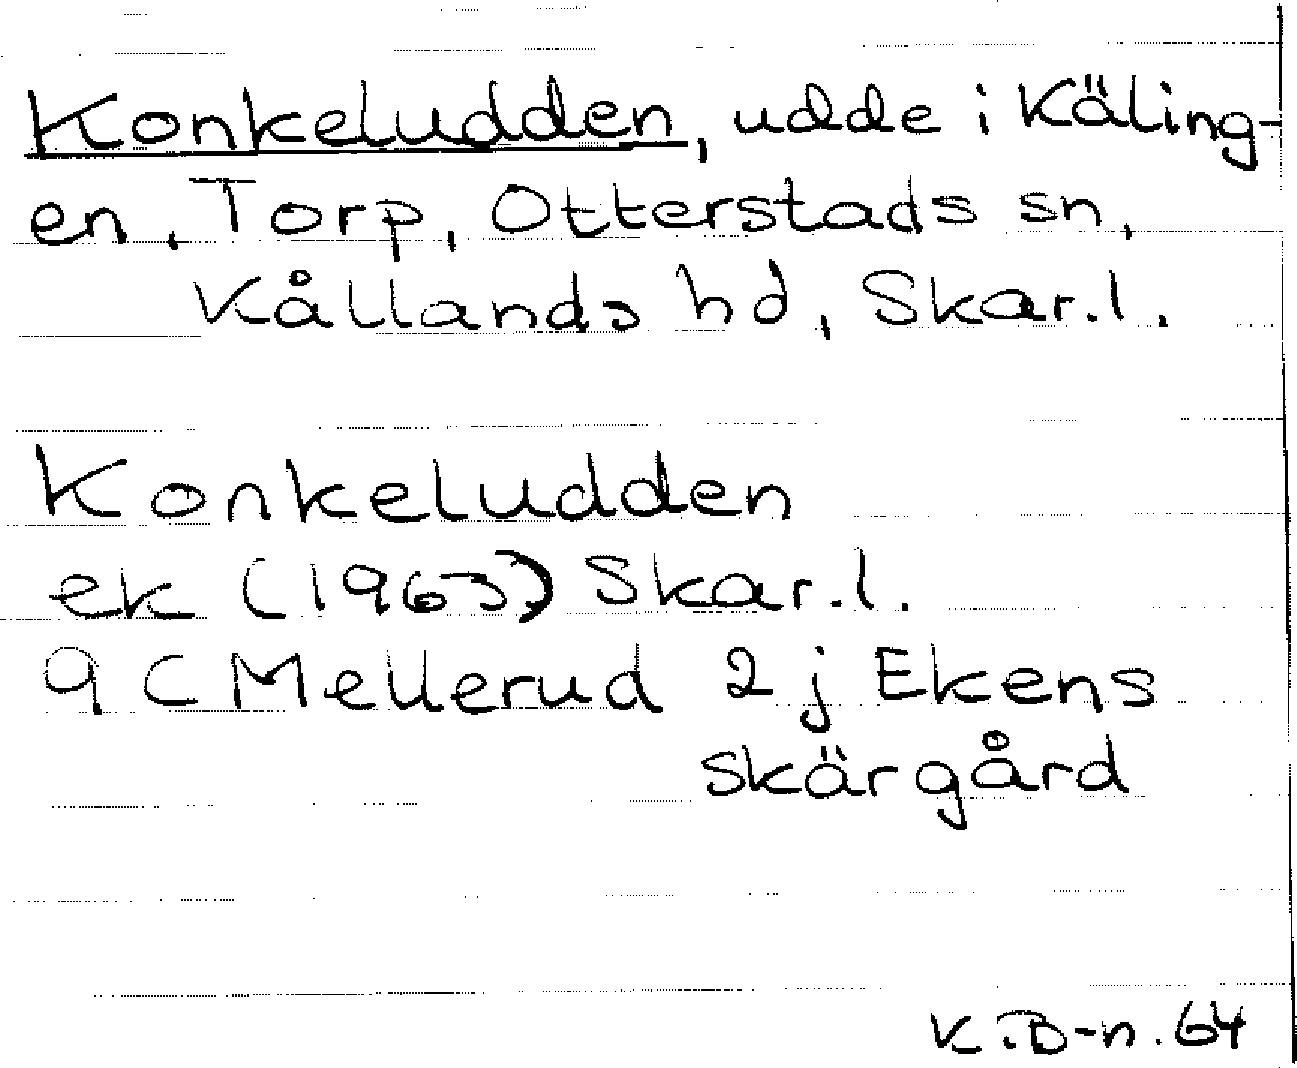 Konkeludden, udde i Käling-
en, Torp, Otterstads sn,
Kållands hd, Skar.l.
Konkeludden
ek (1963) Skar.l.
9 C Mellerud 2 j Ekens
skärgård
K.B-n. 64